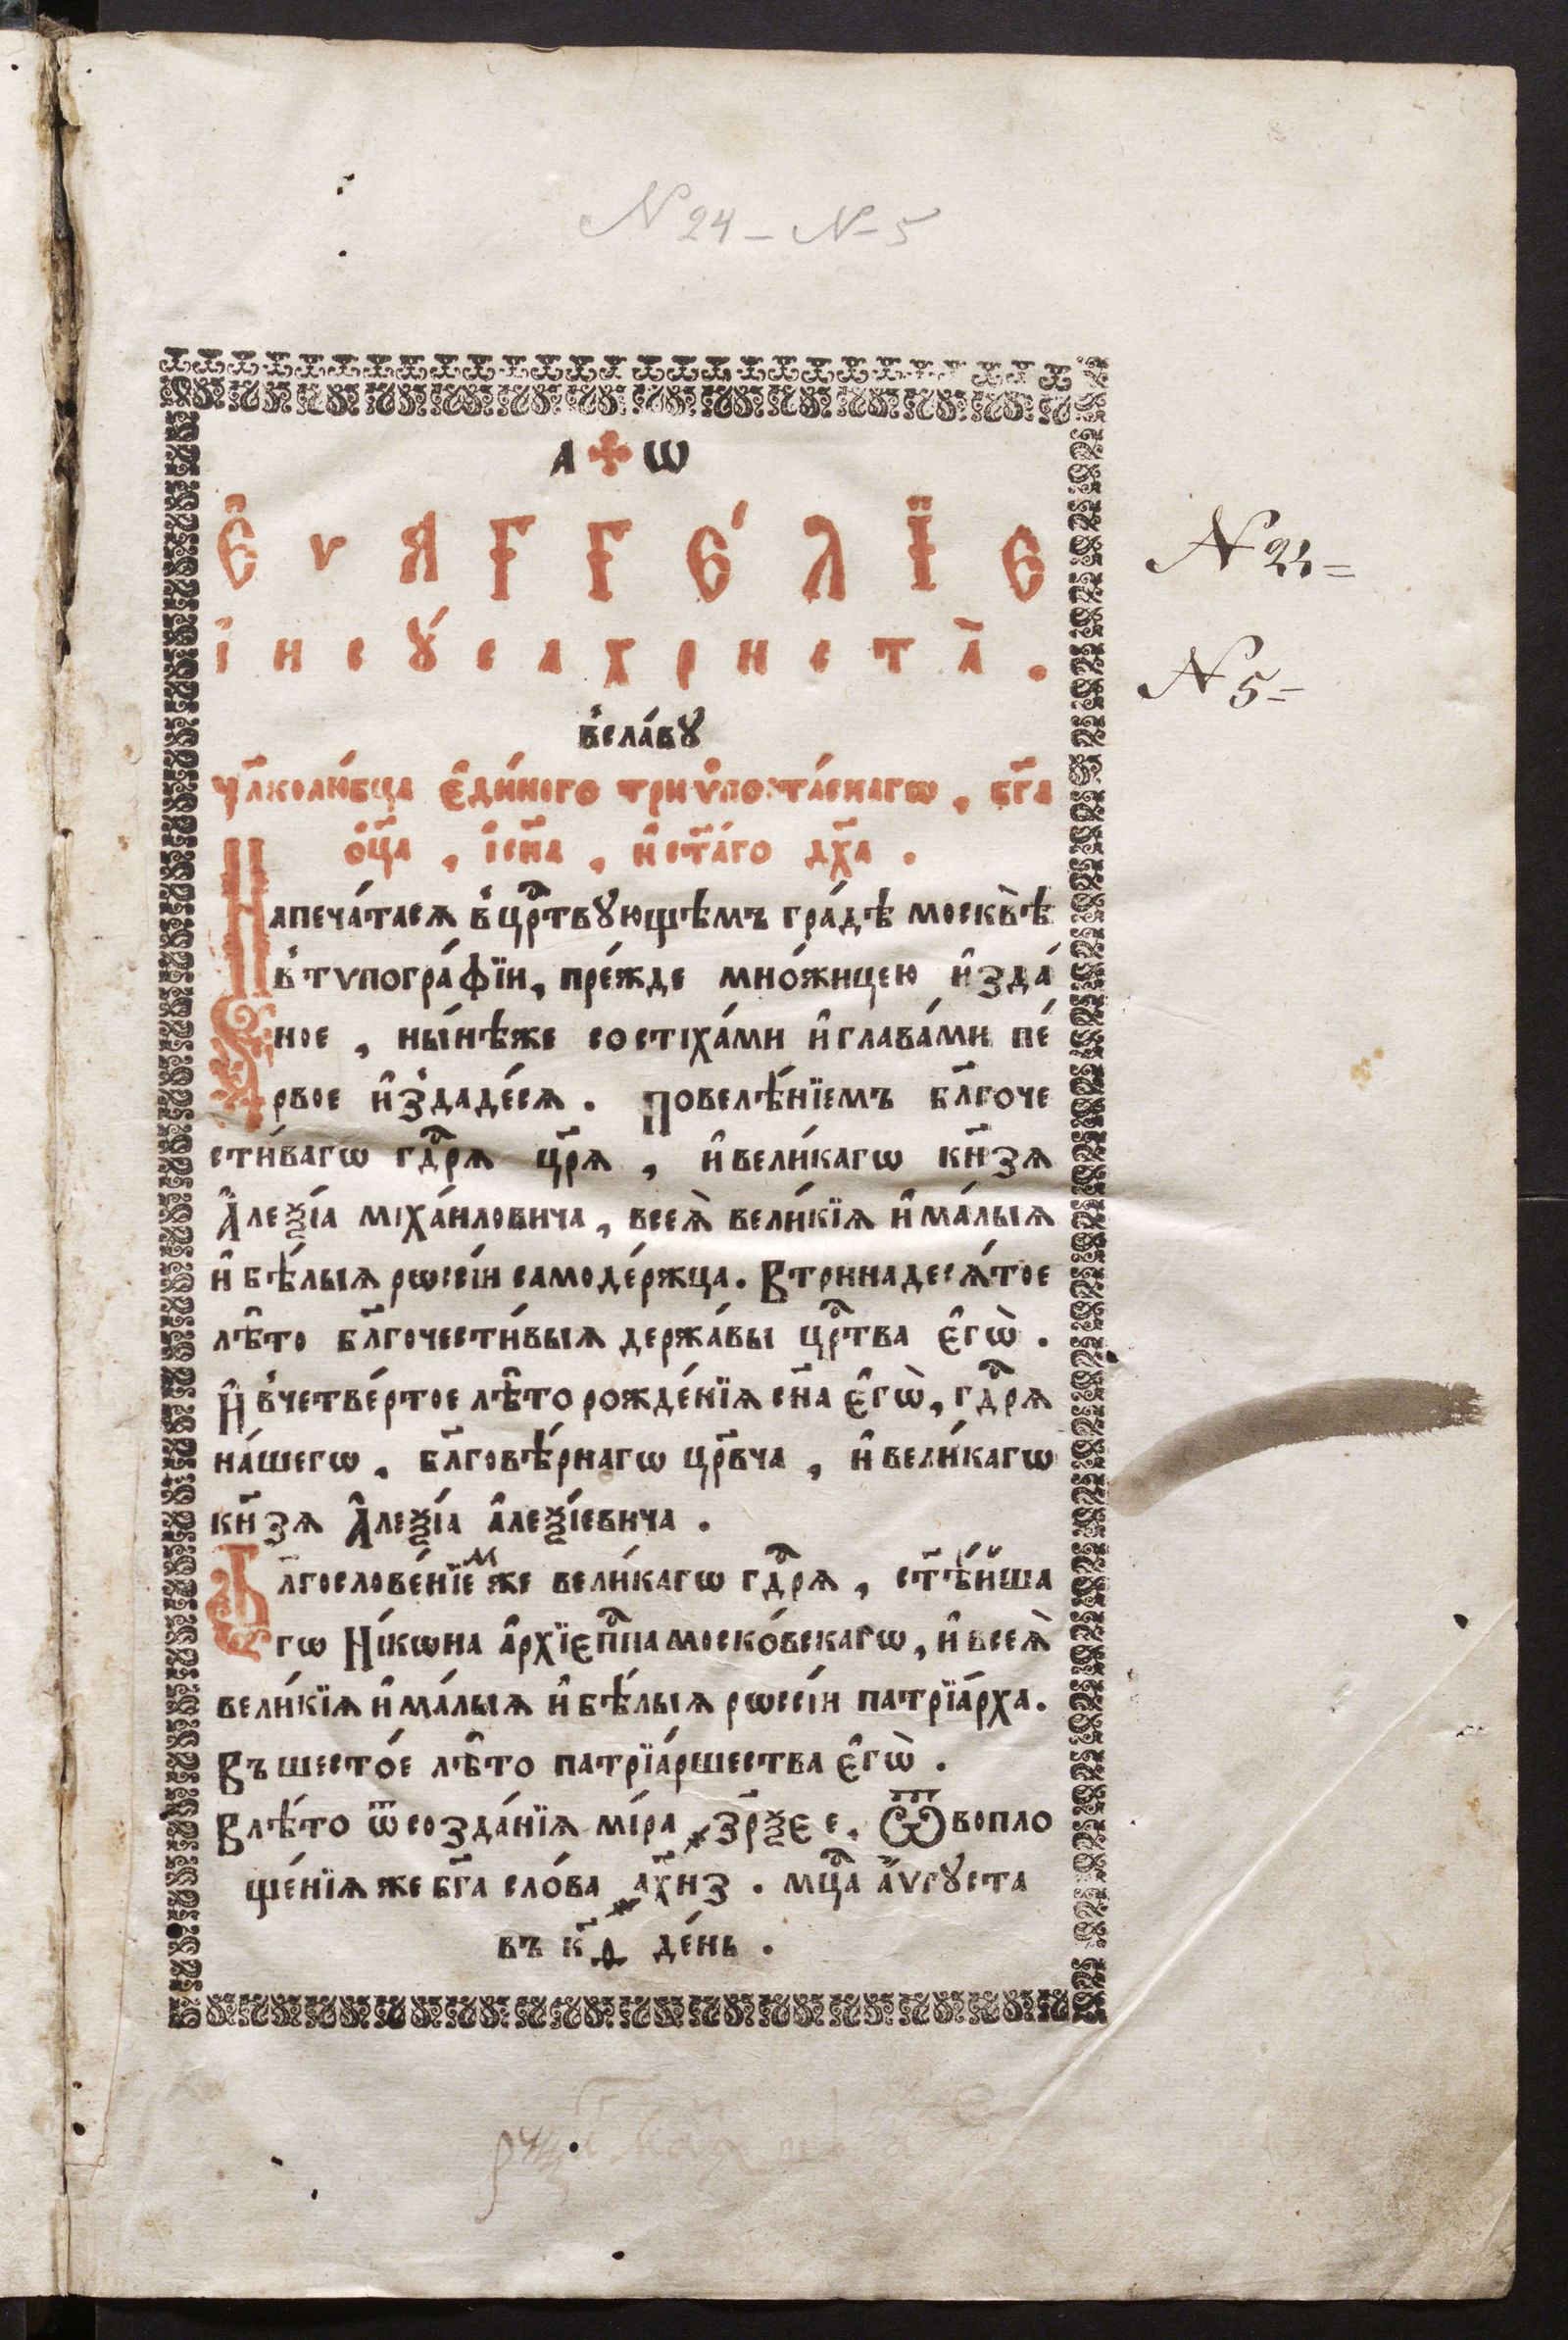 N 24 - N 5
а ✤ ѡ
Є҆ѵаггéлїе
і҆нсꙋ́сахрнстà.
N 24 =
N 5 =
в̾сла́вꙋ
ч҃лколю́бца є҆ди́ного триѵ҆поста́снагѡ, бг҃а
ѻ҆ц҃а, і҆сн҃а, и҆ст҃а́го дх҃а.
Напеча́тася в̾црⷭ҇твꙋющѣмъ гра́дѣ москвѣ̀
в̾тѵпогра́фїи, пре́жде мно́жицею и҆зда́
ное, ны́нѣже состіха́ми и҆глава́ми пе́
рвое и҆з̾даде́ся. Повелѣ́нїемъ бл҃гоче
сти́вагѡ гдⷭ҇ря цр҃я, и҆вели́кагѡ кн҃зя
А҆леѯі́а міха́иловича, всеѧ̀ вели́кїѧ и҆ма́лыѧ
и҆бѣ́лыѧ рѡсі́и самоде́ржца. Втринадесѧ́тое
лѣ́то бл҃гочести́выѧ держа́вы црⷭ҇тва є҆гѡ̀.
И҆ в̾четве́ртое лѣ́то рожде́нїѧ сн҃а є҆гѡ̀, гдⷭ҇рѧ
на́шегѡ, бл҃говѣ́рнагѡ цр҃вча, и҆вели́кагѡ
кн҃зѧ А҆леѯі́а а҆леѯі́евича.
Бл҃гослове́нїеⷨ же вели́кагѡ гдⷭ҇рѧ, ст҃ѣ́йша
гѡ Ні́кѡна а҆рхїєпⷭ҇па моско́вскагѡ, и҆всеѧ̀
вели́кїѧ и҆ма́лыѧ и҆бѣ́лыѧ рѡсі́и патрїа́рха.
Въ шесто́е лѣ́то патрїа́ршества є҆гѡ̀.
Влѣ́то ѿсозда́нїѧ мі́ра ҂зр҃ѯє е. Ѿ вопло
ще́нїѧ же бг҃а сло́ва ҂ах҃нз. мцⷭ҇а а҆́ѵгꙋста
въ к҃д де́нь.